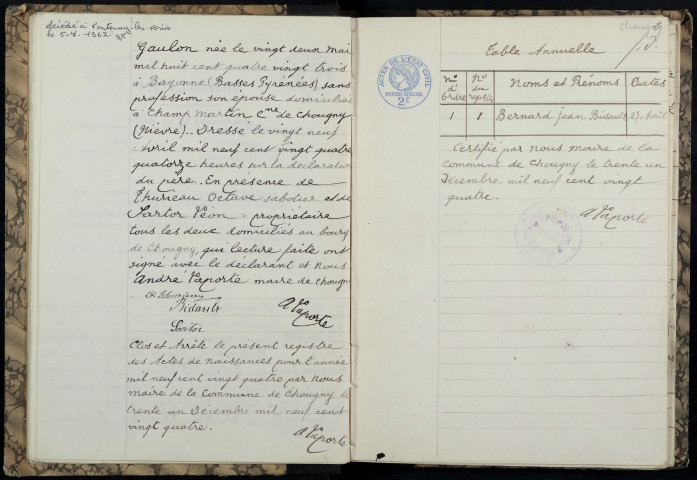 décédé à Fontenay-les-Briis
le 5-4-1962.
Gaulon née le vingt deux Mai
mil huit cent quatre vingt trois
à Bayonne (Basses Pyrénées) sans
profession son épouse domiciliés
à Champ Martin Cne de Chougny
(Nièvre). Dressé le vingt neuf
Avril mil neuf cent vingt quatre
quatorze heures sur la déclaration
du père. En présence de
Thurieau Octave sabotier et de
Sartor Léon propriétaire
tous les deux domiciliés au bourg
de Chougny, qui lecture faite ont
signé avec le déclarant et Nous
André Laporte maire de Chougny
Bidault
A Laporte
Sartor
Clos et Arrêté le présent registre
des Actes de naissances pour l'année
mil neuf cent vingt quatre par nous
maire de la Commune de Chougny le
trente un Décembre mil neuf cent
vingt quatre.
A Laporte
ACTES DE L'ETAT CIVIL
PAPIER SPECIAL
2F
Table Annuelle
No d'Ordre
No du registre
Noms et Prénoms
Dates
1 1 Bernard Jean Bidault 27 Avril
Certifié par nous maire de la
Commune de Chougny le trente un
Décembre mil neuf cent vingt
quatre.
A Laporte